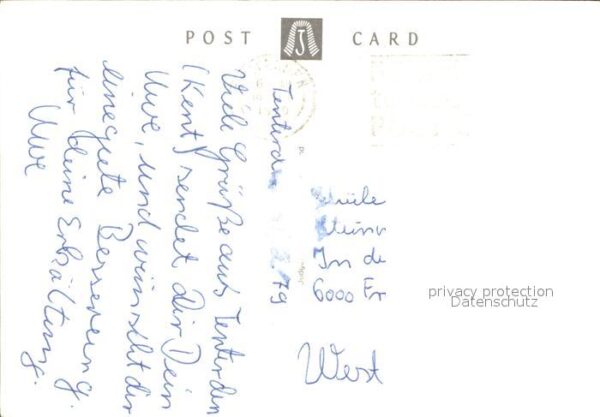 POST CARD
J
Tenterden
2.79
Viele Grüße aus Tenterden
(Kent) sendet dir Dein
Uwe, und wünscht dir
eine gute Besserung
für deine Erkältung.
Uwe
In de
6000 Fr
West
privacy protection
Datenschutz